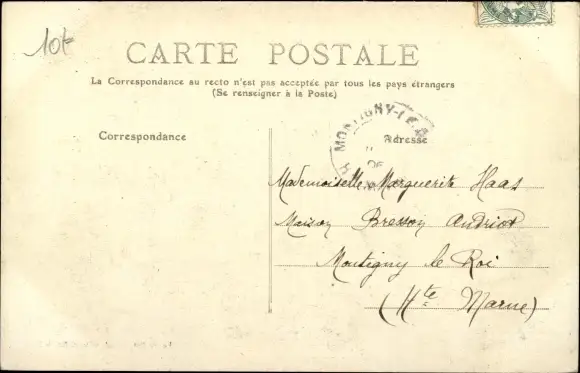 10f
CARTE POSTALE
La Correspondance au recto n'est pas acceptée par tous les pays étrangers
(Se renseigner à la Poste)
Correspondance
Adresse
MONTIGNY-LE-
Mademoiselle Marguerite Haas
Maison Bresson Andriot
Montigny le Roi
(Hte Marne)